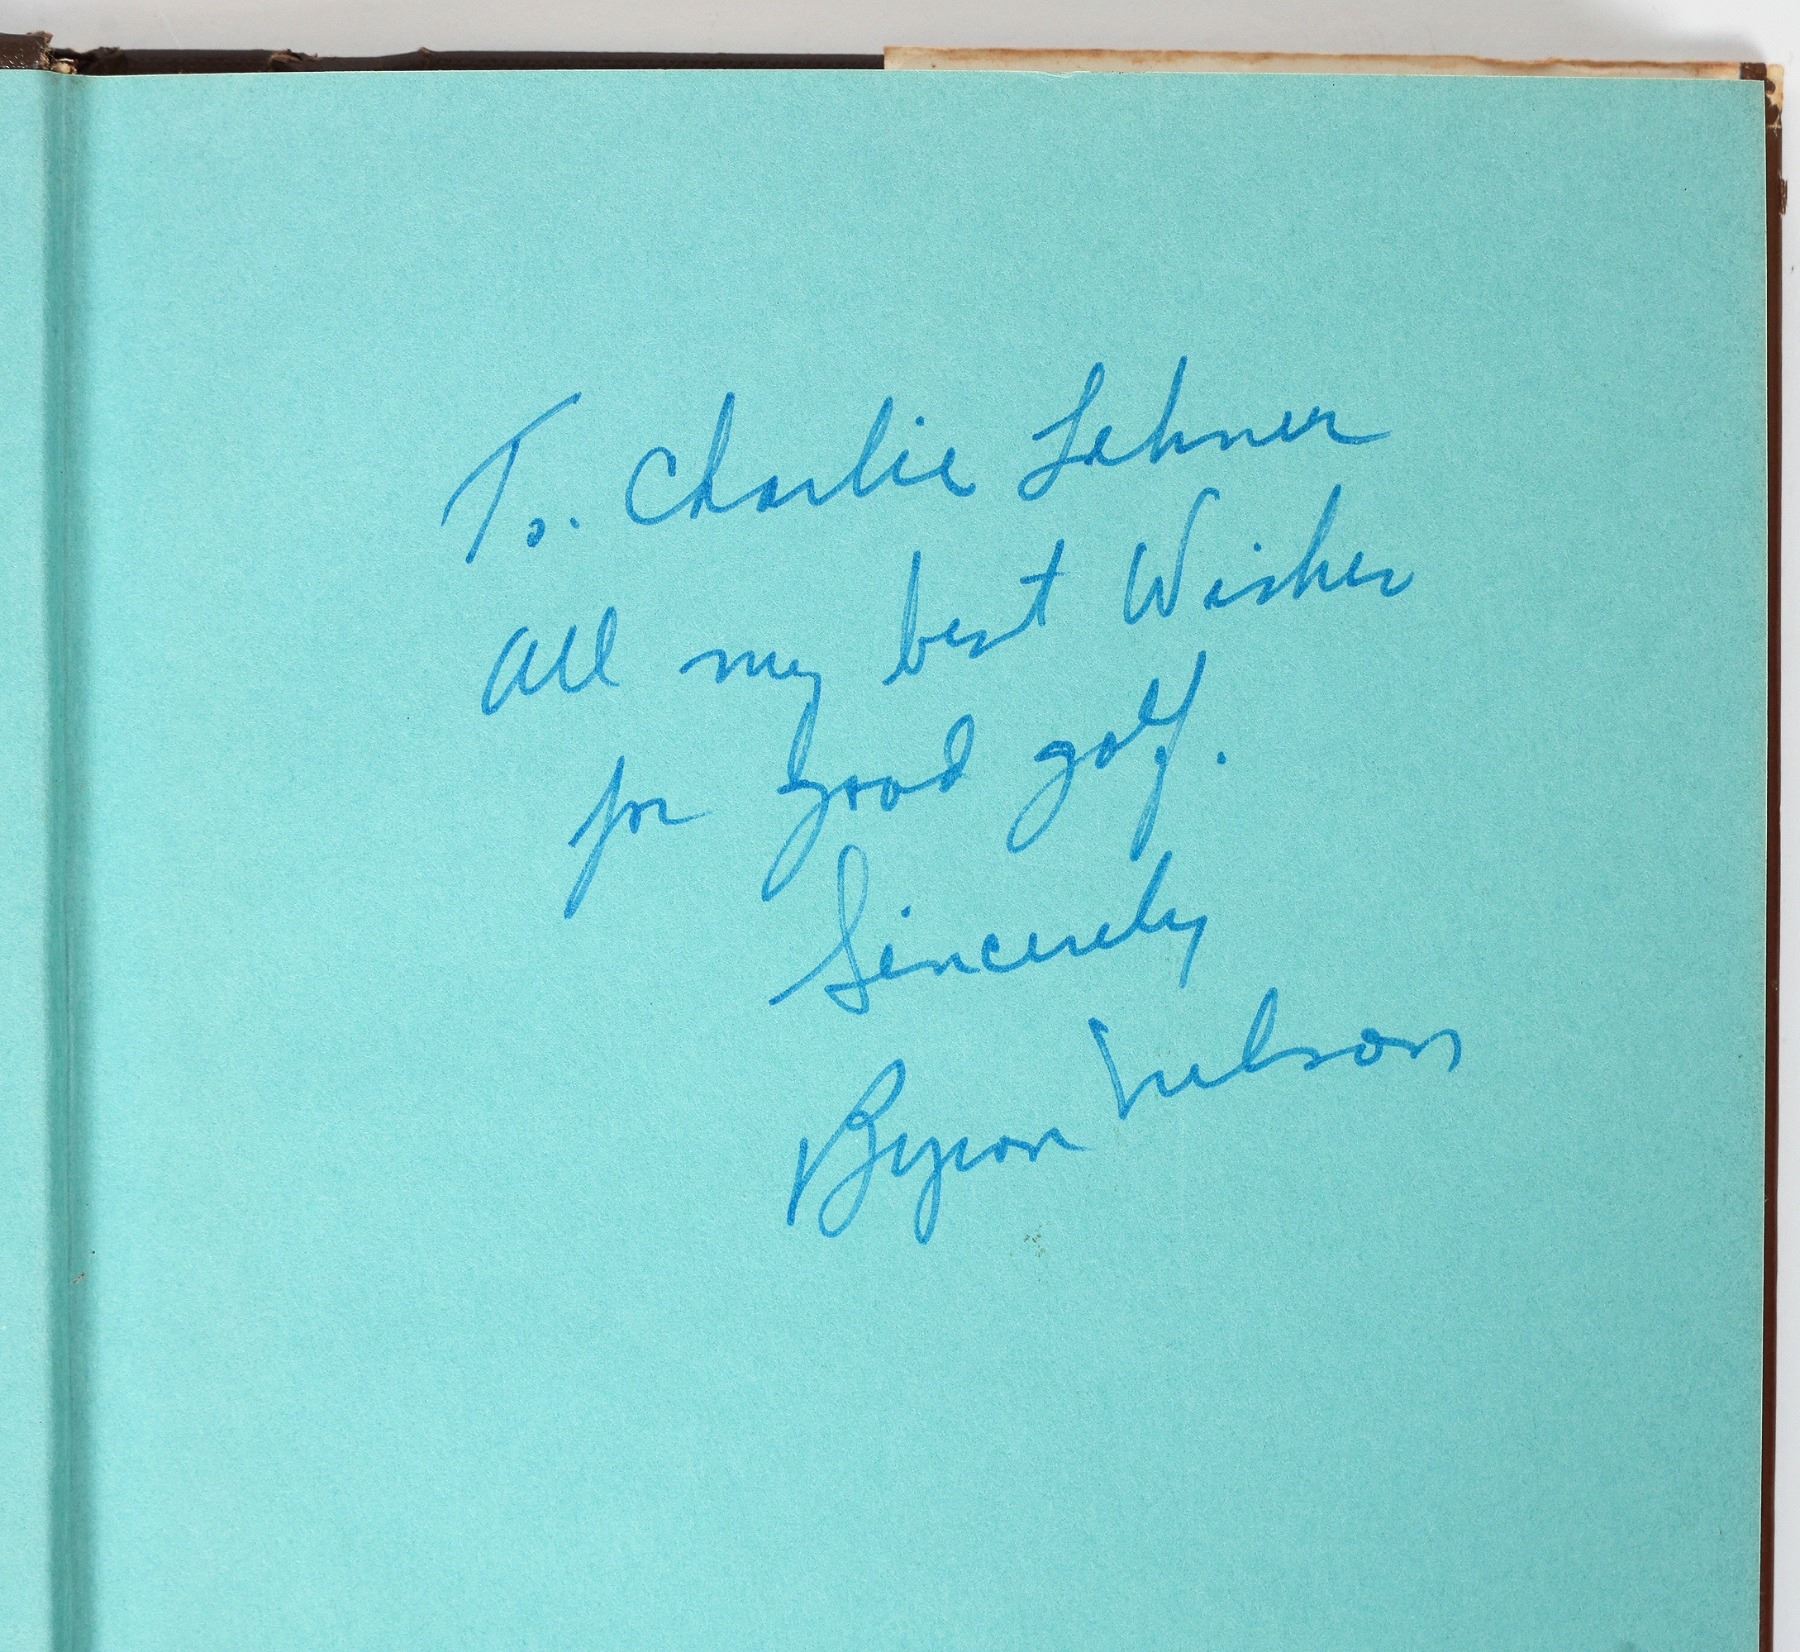 To. Charlie Lehner
All my best Wishes
for good golf.
Sincerely
Byron Nelson